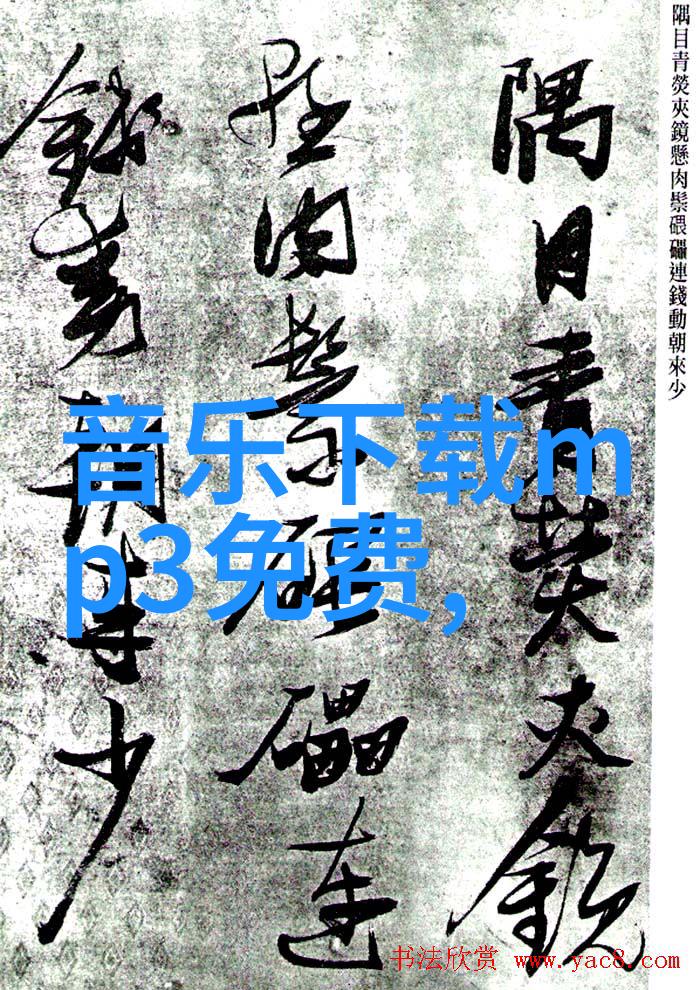 隅目青熒夾鏡懸肉鬃碨礧連錢動朝來少
隅目青熒夾鏡
懸肉鬃碨礧連
錢動朝來少
音乐下载m
p3免费,
书法欣赏 www.yac8.com